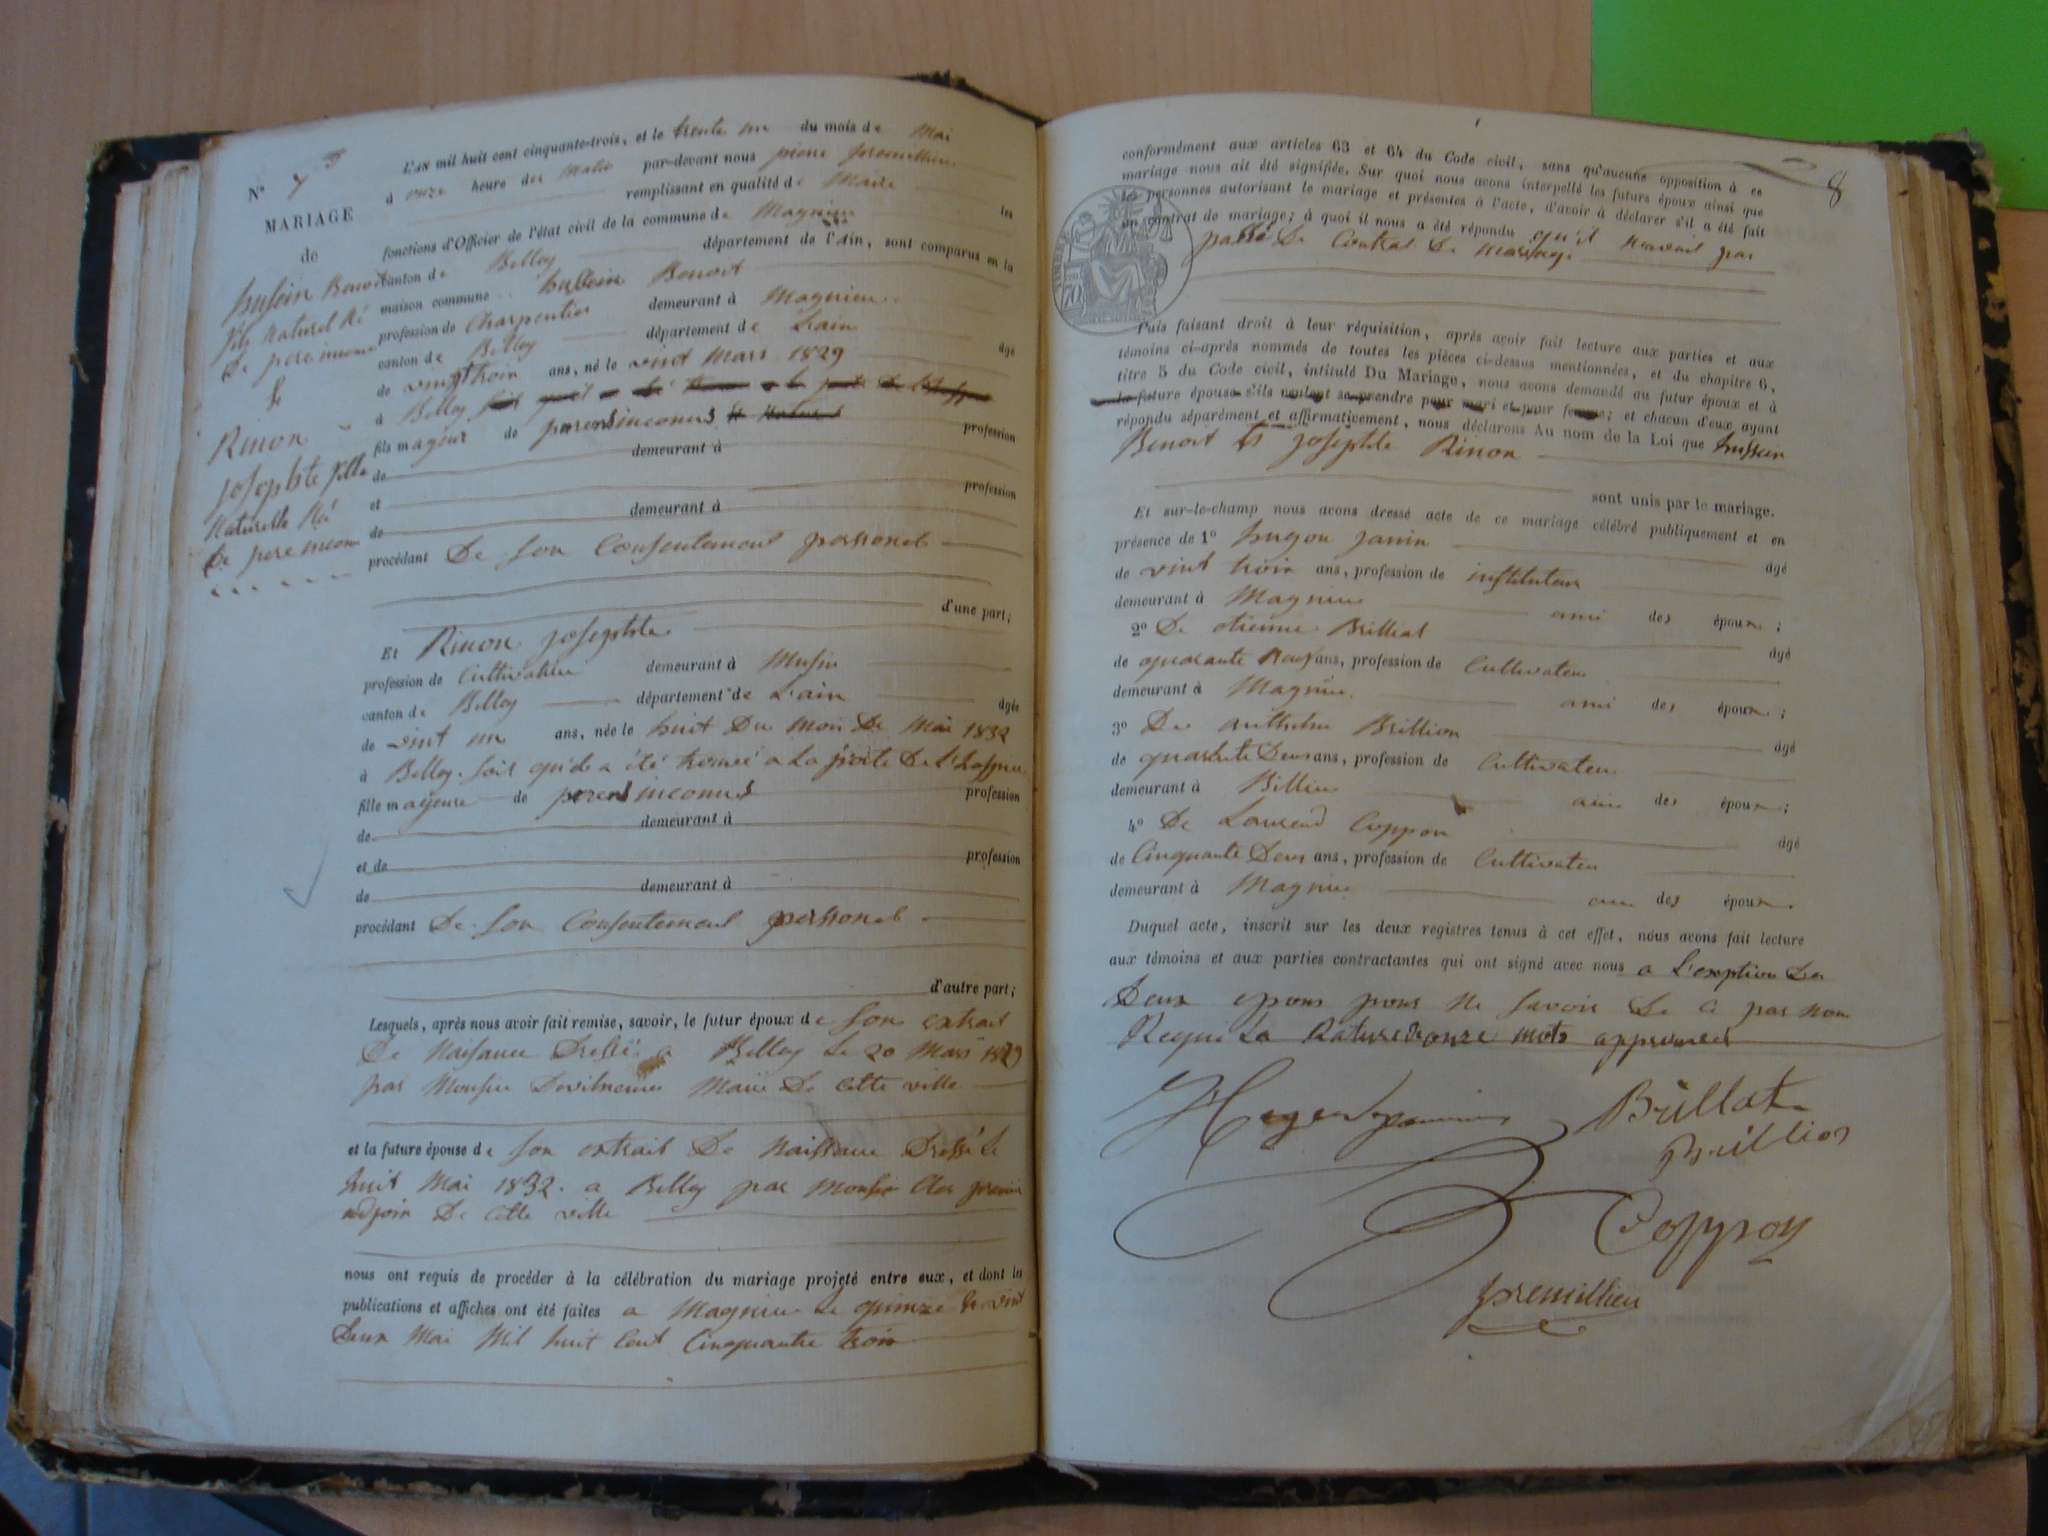 L'AN mil huit cent cinquante-trois, et le trente un du mois de Mai
à onze heure des Matin par-devant nous pierre premillieu
remplissant en qualité de Maire les
fonctions d'Officier de l'état civil de la commune de Magnieu
canton de Belley département de l'Ain, sont comparus en la
maison commune Benoit
profession de Charpentier demeurant à Magnieu
canton de Belley département de L'ain âgé
de vingt troix ans, né le vint Mars 1829
à Belley
fils majeur de parens inconnus profession
de demeurant à
et profession
de demeurant à
procédant De son Consentement personel
d'une part;
Et Rinon josephte
profession de Cultivatrice demeurant à Musin
canton de Belley département de L'ain âgée
de vint un ans, née le huit Du Moi De Mai 1832
à Belley. soit qu'elle a été trouvé a La porte De L'hospice
fille majeure de parens inconnus profession
de demeurant à
et de profession
de demeurant à
procédant De son Consentement personel
d'autre part;
Lesquels, après nous avoir fait remise, savoir, le futur époux de son extrait
De Naisance Dressé a Belley Le 20 Mars 1829
par Monsieur Maire De cette ville
et la future épouse de son extrait De Naissance Dressé Le
huit Mai 1832. a Belley par Monsieur premier
adjoin De cette ville
nous ont requis de procéder à la célébration du mariage projeté entre eux, et dont les
publications et affiches ont été faites a Magnieu Le quinze et vint
Deux Mai Mil huit Cent Cinquante trois
N° 7
MARIAGE
de
Benoit
fils Naturel Né
De pere inconnu
&
Rinon
josephte fille
Naturelle Né
De pere incon
8
conformément aux articles 63 et 64 du Code civil, sans qu'aucune opposition à ce
mariage nous ait été signifiée. Sur quoi nous avons interpellé les futurs époux ainsi que
les personnes autorisant le mariage et présentes à l'acte, d'avoir à déclarer s'il a été fait
un contrat de mariage; à quoi il nous a été répondu qu'il n'avait pas
passé De Contrat De mariage
TIMBRE
70
Puis faisant droit à leur réquisition, après avoir fait lecture aux parties et aux
témoins ci-après nommés de toutes les pièces ci-dessus mentionnées, et du chapitre 6,
titre 5 du Code civil, intitulé Du Mariage, nous avons demandé au futur époux et à
la future épouse s'ils veulent se prendre pour mari et pour femme; et chacun d'eux ayant
répondu séparément et affirmativement, nous déclarons Au nom de la Loi que
Benoit et josephte Rinon
sont unis par le mariage.
Et sur-le-champ nous avons dressé acte de ce mariage célébré publiquement et en
présence de 1° hugon janin âgé
de vint troix ans, profession de instituteur
demeurant à Magnieu ami des époux;
2° De etienne Brillat âgé
de quarante Neuf ans, profession de Cultivateur
demeurant à Magnieu ami des époux;
3° De anthelme Brillion âgé
de quarante Deux ans, profession de Cultivateur
demeurant à Billieu ami des époux;
4° De Laurend Coppon âgé
de Cinquante Deux ans, profession de Cultivateur
demeurant à Magnieu ami des époux.
Duquel acte, inscrit sur les deux registres tenus à cet effet, nous avons fait lecture
aux témoins et aux parties contractantes qui ont signé avec nous a L'exeption Des
Deux epoux pour Ne savoir De ce par nous
Requi La Rature D'onze mots approuvée
Brillat
Brillion
premillieu